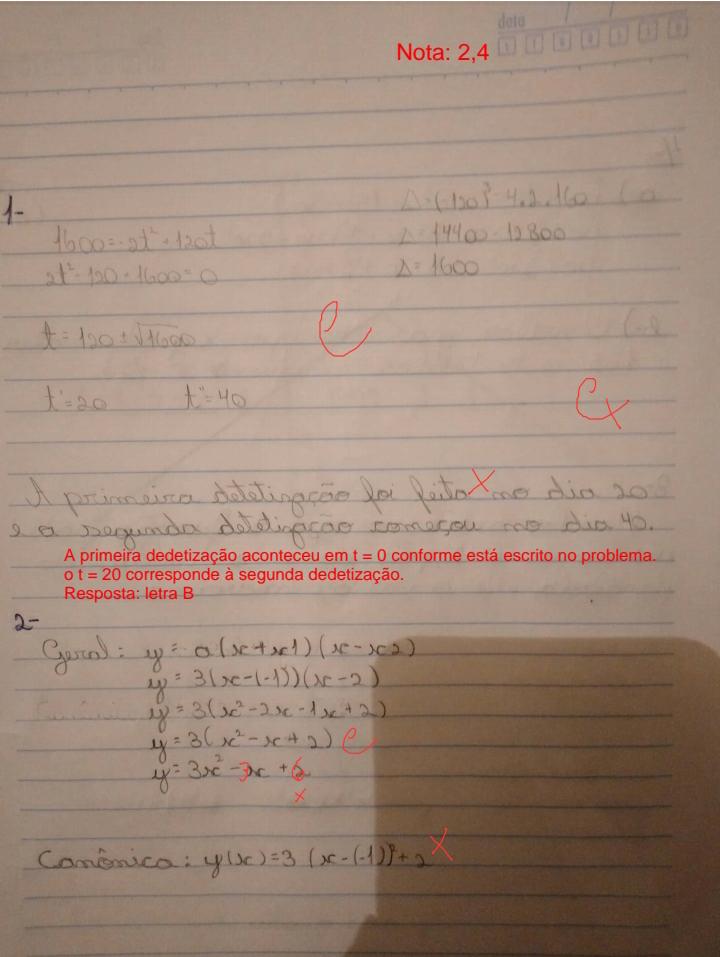 data
Nota: 2,4
1-
Δ=(-120)² - 4.2.160
1600=-2t²+120t
Δ=14400-12800
2t²-120+1600=0
Δ=1600
t=120±√1600
C
t'=20 t''=40
C x
A primeira detetização foi feita X no dia 20
e a segunda detetização começou no dia 40.
A primeira dedetização aconteceu em t = 0 conforme está escrito no problema.
o t = 20 corresponde à segunda dedetização.
Resposta: letra B
2-
Geral: y = a(x+x1)(x-x2)
y = 3(x-(-1))(x-2)
y = 3(x²-2x-1x+2)
y = 3(x²-x+2) C
y = 3x²-3x+6
x
Canônica: y(x)=3 (x-(-1))²+2 X